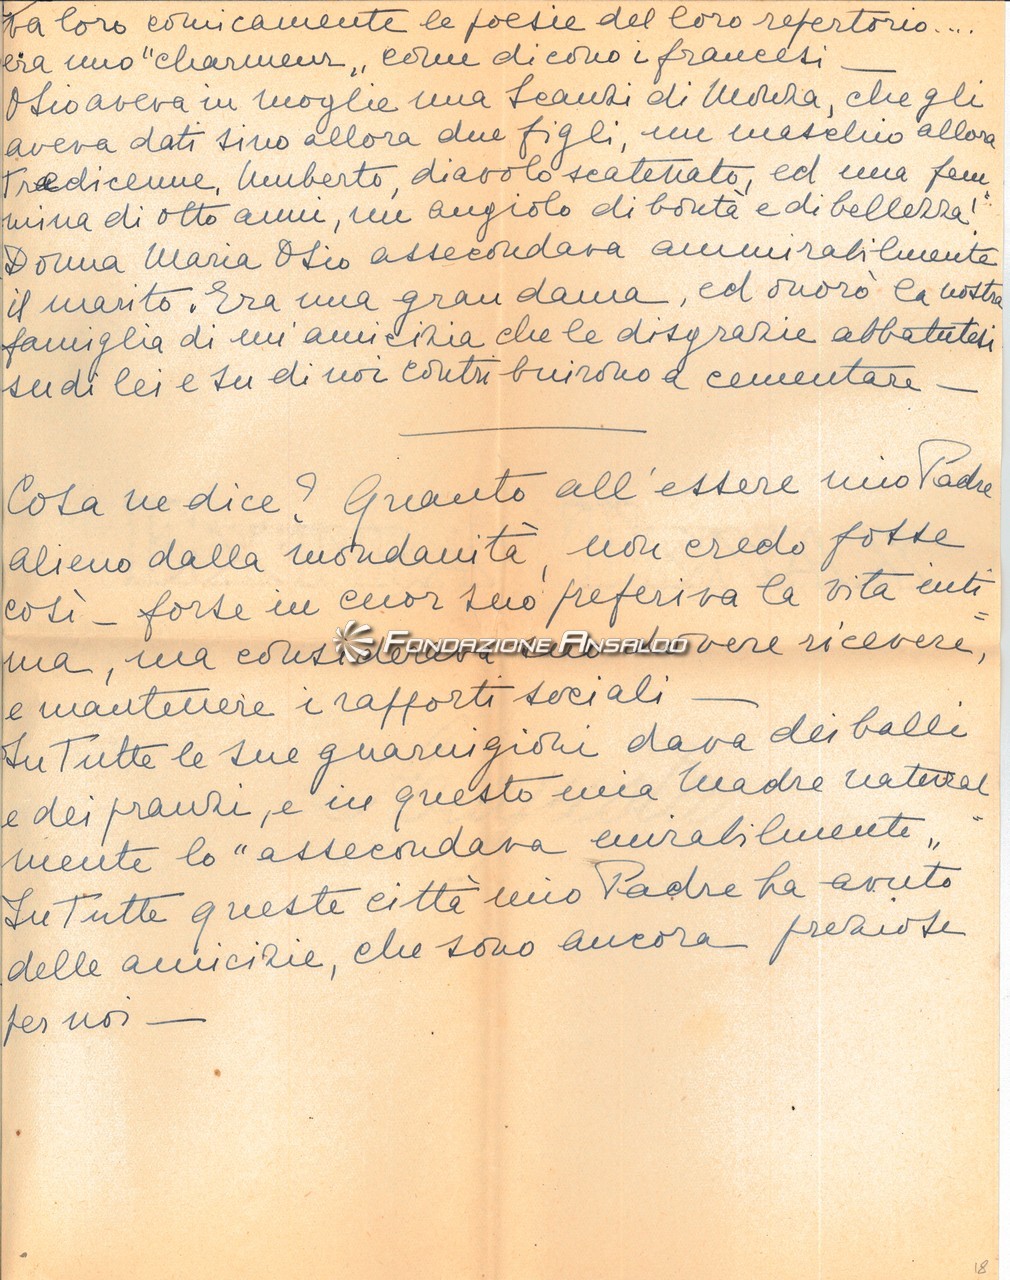 va loro comicamente le poesie del loro repertorio....
era uno "charmeur„ come dicono i francesi —
Osio aveva in moglie una Scanzi di Monza, che gli
aveva dati sino allora due figli, un maschio allora
Tredicenne, Umberto, diavolo scatenato, ed una fem=
mina di otto anni, un angiolo di bontà e di bellezza!
Donna Maria Osio assecondava ammirabilmente
il marito. Era una gran dama, ed onorò la nostra
famiglia di un'amicizia che le disgrazie abbatutesi
su di lei e su di noi contribuirono a cementare —
Cosa ne dice? Quanto all'essere mio Padre
alieno dalla mondanità, non credo fosse
così — forse in cuor suo preferiva la vita inti=
ma, ma considerava suo dovere ricevere,
Fondazione Ansaldo
e mantenere i rapporti sociali —
In Tutte le sue guarnigioni dava dei balli
e dei pranzi, e in questo mia Madre natural=
mente lo "assecondava mirabilmente„
In Tutte queste città mio Padre ha avuto
delle amicizie, che sono ancora preziose
per noi —
18